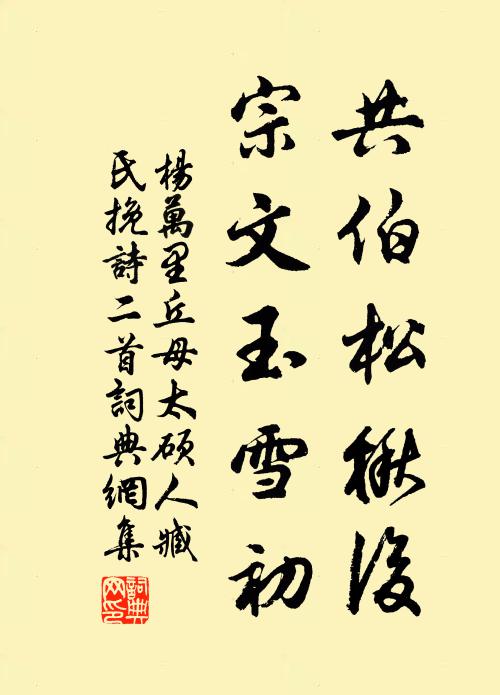 共伯松楸後
宗文玉雪初
楊萬里丘母太碩人臧
氏挽詩二首詞典網集
詞典網印